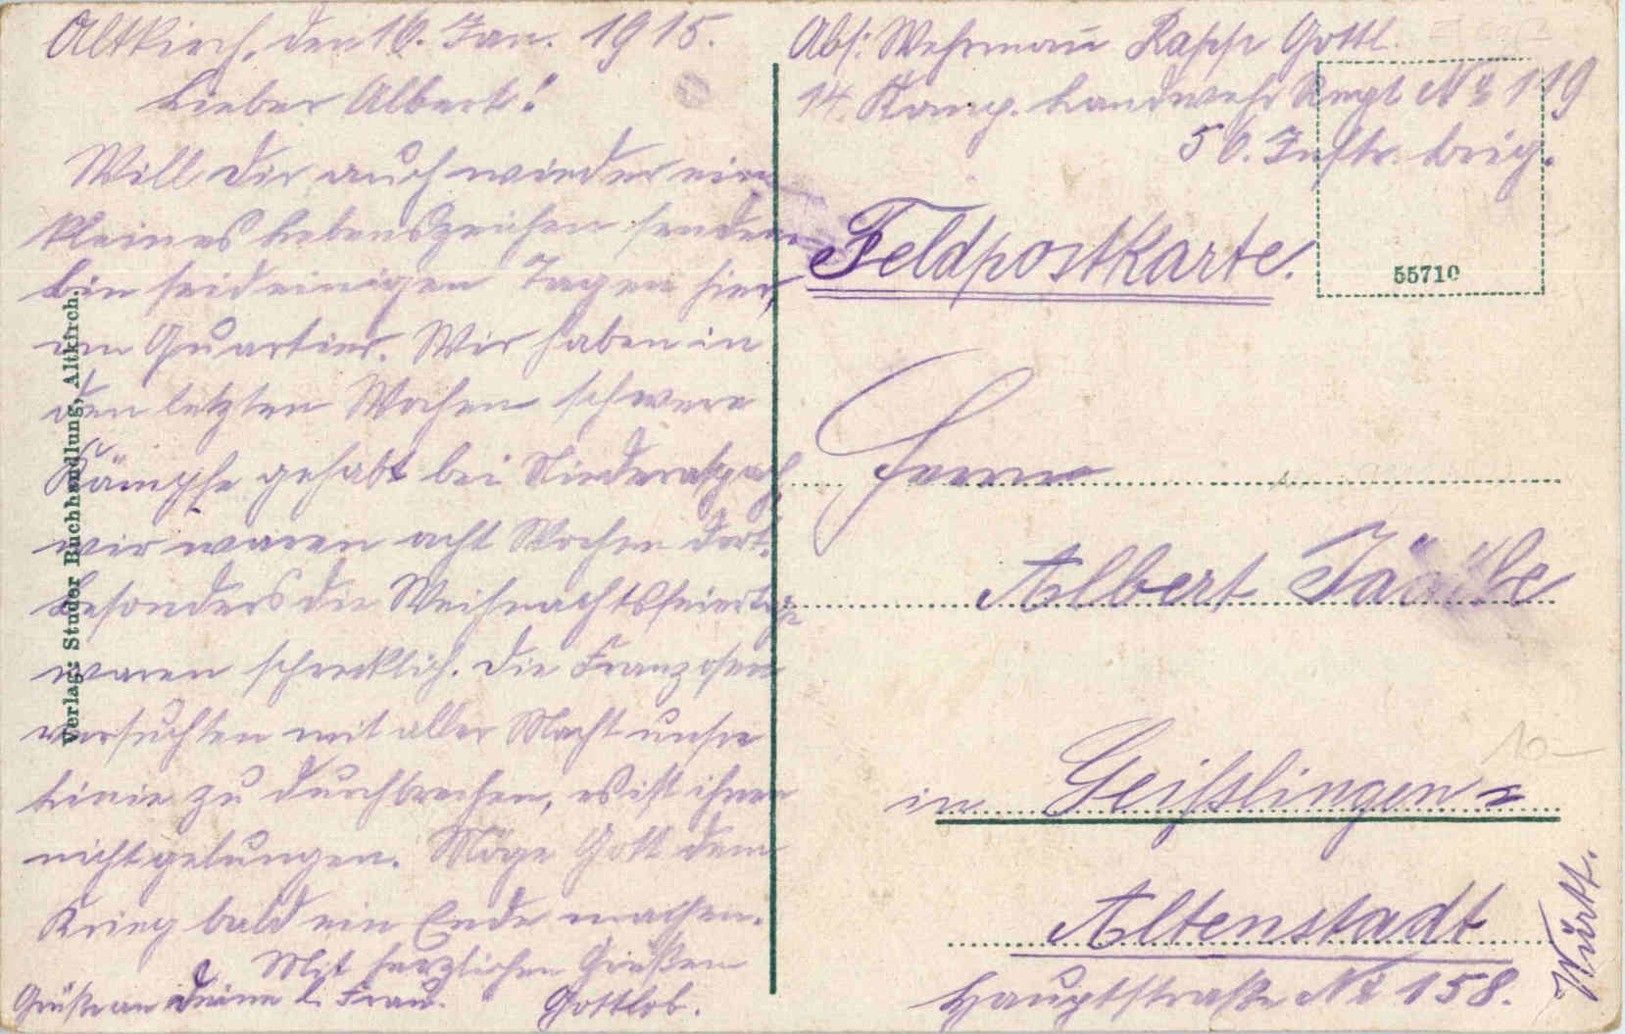 Altkirch, den 16. Jan. 1915.
Lieber Albert!
Will Dir auch wieder ein
kleines Lebenszeichen senden
bin seid einigen Tagen hier
im Quartier. Wir haben in
den letzten Wochen schwere
Kämpfe gehabt bei Niederaspach,
wir waren acht Wochen dort.
Besonders die Weihnachtsfeiertage
waren schrecklich. Die Franzosen
versuchten mit aller Macht unsre
Linie zu durchbrechen, es ist ihnen
nicht gelungen. Möge Gott dem
Krieg bald ein Ende machen.
Mit herzlichen Grüßen
Grüße an Deine l. Frau. Gottlob.
Verlag: Studer Buchhandlung, Altkirch.
Abs: Wehrmann Rapp Gottl.
14. Komp. Landwehr Regt. No 119
56. Inftr. Brig.
Feldpostkarte.
55710
Herrn
Albert
in Geisslingen
Altenstadt
Württ.
Hauptstraße No 158.
10-